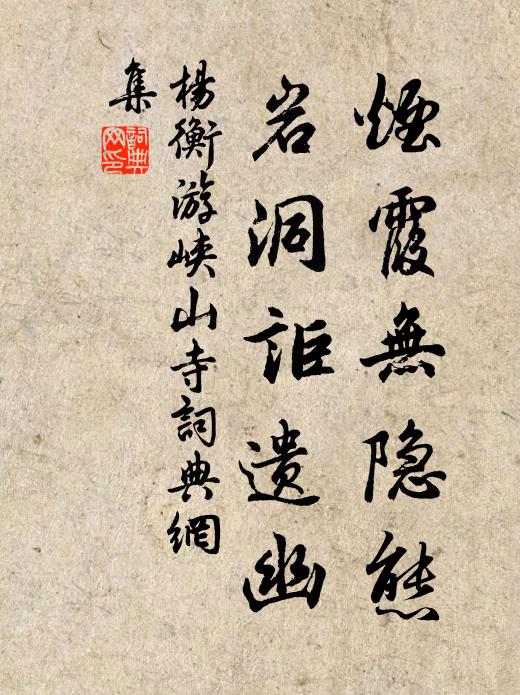 煙霞無隐態
岩洞詎遺幽
楊衡游峽山寺詞典網
集
詞典
网印